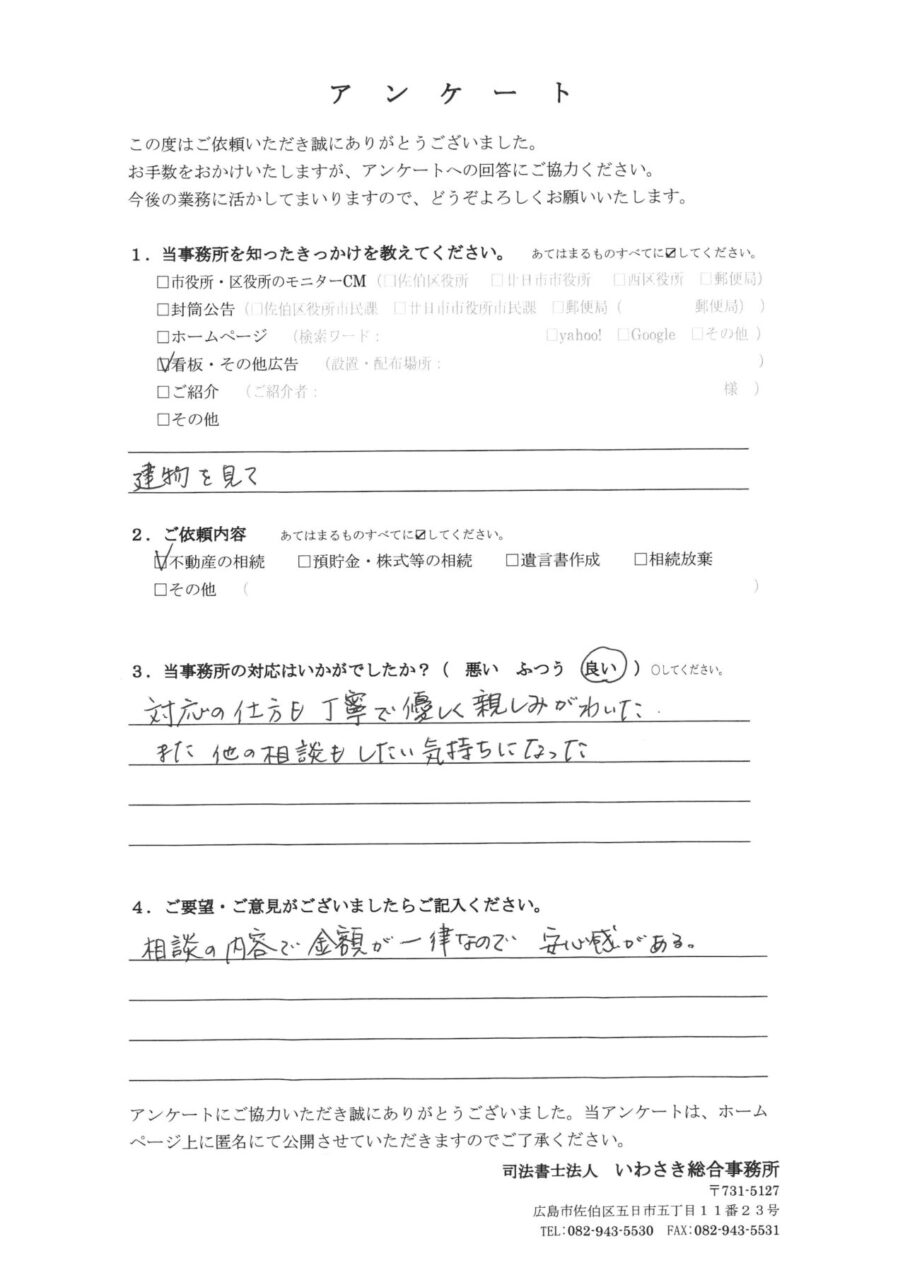 アンケート
この度はご依頼いただき誠にありがとうございました。
お手数をおかけいたしますが、アンケートへの回答にご協力ください。
今後の業務に活かしてまいりますので、どうぞよろしくお願いいたします。
1．当事務所を知ったきっかけを教えてください。 あてはまるものすべてに☑してください。
□市役所・区役所のモニターCM（□佐伯区役所 □廿日市市役所 □西区役所 □郵便局）
□封筒公告（□佐伯区役所市民課 □廿日市市役所市民課 □郵便局（ 郵便局））
□ホームページ （検索ワード： □yahoo! □Google □その他 ）
☑看板・その他広告 （設置・配布場所： ）
□ご紹介 （ご紹介者： 様 ）
□その他
建物を見て
2．ご依頼内容 あてはまるものすべてに☑してください。
☑不動産の相続 □預貯金・株式等の相続 □遺言書作成 □相続放棄
□その他 （ ）
3．当事務所の対応はいかがでしたか？（ 悪い ふつう 良い ）○してください。
対応の仕方も丁寧で優しく親しみがわいた.
また他の相談もしたい気持ちになった
4．ご要望・ご意見がございましたらご記入ください。
相談の内容で金額が一律なので 安心感がある。
アンケートにご協力いただき誠にありがとうございました。当アンケートは、ホーム
ページ上に匿名にて公開させていただきますのでご了承ください。
司法書士法人 いわさき総合事務所
〒731-5127
広島市佐伯区五日市五丁目１１番２３号
TEL：082-943-5530 FAX：082-943-5531